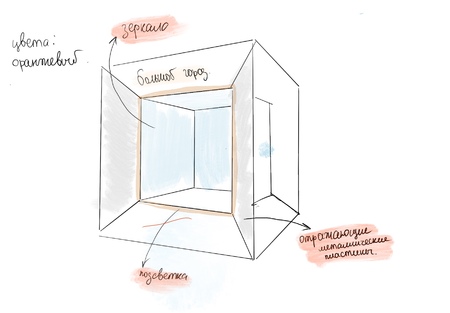 зеркало
цвета:
оранжевый.
большой город
отражающие
металлические
пластины.
подсветка